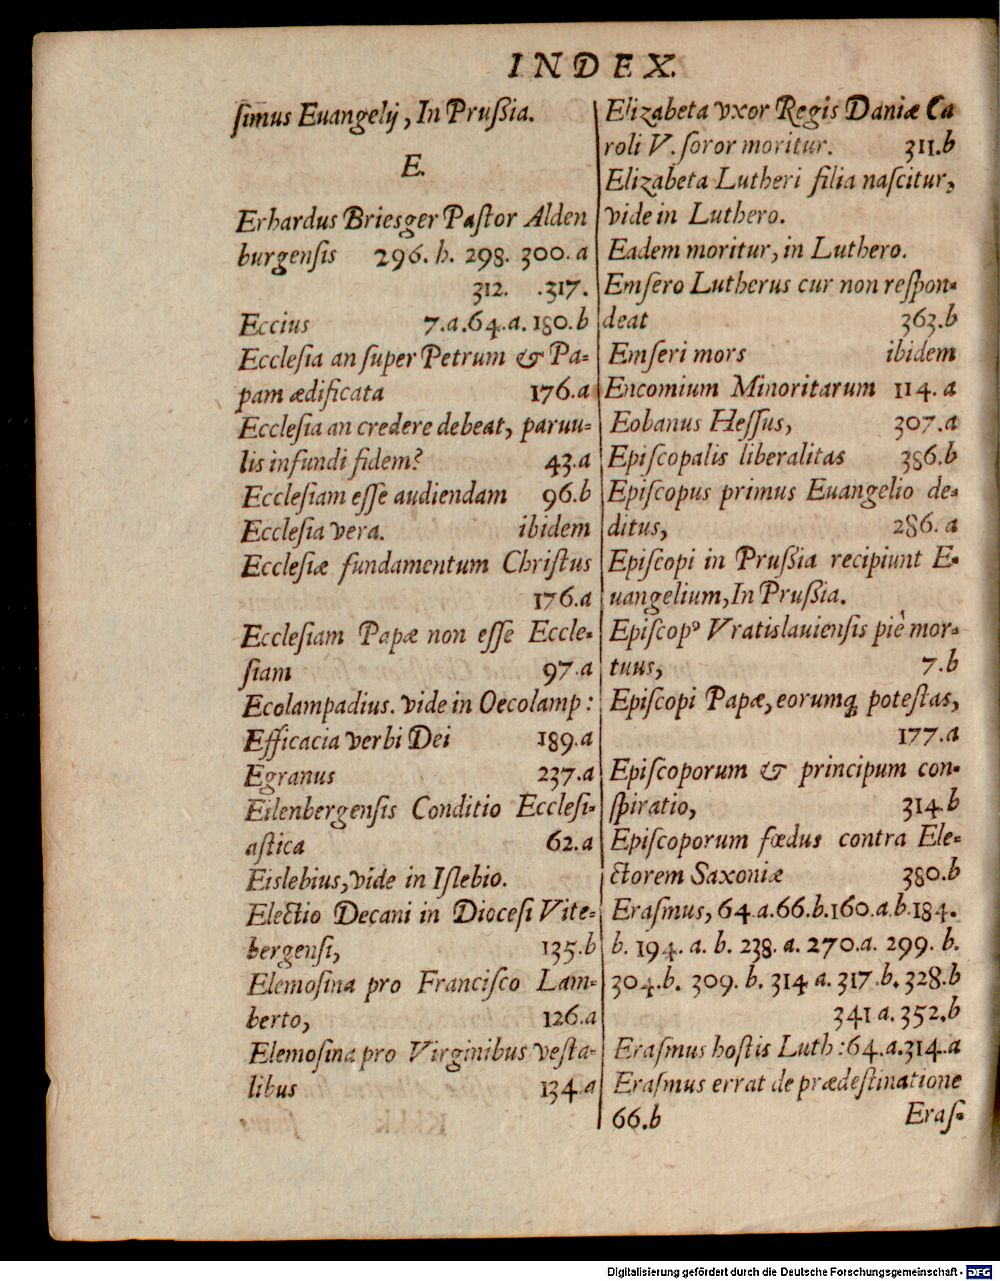 INDEX.
ſimus Euangelij, In Prußia.
E.
Erhardus Briesger Paſtor Alden
burgenſis 296. h. 298. 300. a
312. .317.
Eccius 7.a.64.a.180.b
Eccleſia an ſuper Petrum & Pa-
pam ædificata 176.a
Eccleſia an credere debeat, paruu-
lis infundi fidem? 43.a
Eccleſiam eſſe audiendam 96.b
Eccleſia vera. ibidem
Eccleſiæ fundamentum Chriſtus
176.a
Eccleſiam Papæ non eſſe Eccle-
ſiam 97.a
Ecolampadius. vide in Oecolamp:
Efficacia verbi Dei 189.a
Egranus 237.a
Eilenbergenſis Conditio Eccleſi-
aſtica 62.a
Eislebius, vide in Iſlebio.
Electio Decani in Diœceſi Vite-
bergenſi, 135.b
Elemoſina pro Franciſco Lam-
berto, 126.a
Elemoſina pro Virginibus veſta-
libus 134.a
Elizabeta vxor Regis Daniæ Ca
roli V. ſoror moritur. 311.b
Elizabeta Lutheri filia naſcitur,
vide in Luthero.
Eadem moritur, in Luthero.
Emſero Lutherus cur non reſpon-
deat 363.b
Emſeri mors ibidem
Encomium Minoritarum 114. a
Eobanus Heſſus, 307.a
Epiſcopalis liberalitas 386.b
Epiſcopus primus Euangelio de-
ditus, 286. a
Epiſcopi in Prußia recipiunt E-
uangelium, In Prußia.
Epiſcopꝰ Vratislauienſis piè mor-
tuus, 7.b
Epiſcopi Papæ, eorumq́ue poteſtas,
177.a
Epiſcoporum & principum con-
ſpiratio, 314.b
Epiſcoporum fœdus contra Ele-
ctorem Saxoniæ 380.b
Eraſmus, 64.a.66.b.160.a.b.184.
b. 194. a. b. 238. a. 270.a. 299. b.
304.b. 309. b. 314 a. 317.b. 328.b
341 a. 352.b
Eraſmus hoſtis Luth:64.a.314.a
Eraſmus errat de prædeſtinatione
66.b Eraſ-
Digitalisierung gefördert durch die Deutsche Forschungsgemeinschaft - DFG